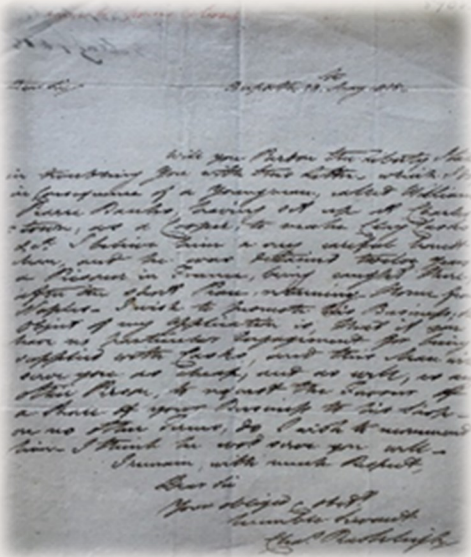 Dear Sir
May
Will you Pardon the liberty I take
in troubling You with this Letter, which I
in Consequence of a Young man, called William
Banks, having set up at Charles
town, as a Cooper to make Clay Casks
&c. I believe him a very careful honest
Man, and he was detained twelve Years
a Prisoner in France, being caught there
after the short Peace returning Home from
Naples - I wish to promote his Business,
object of my application is, that if you
have no particular Engagement for being
supplied with Casks, and this Man will
serve you as cheap, and as well, as any
other Person, to request the Favour of
a Share of your Business to his Shop -
on no other Terms, do I wish to recommend
him I think he will serve you well -
I remain, with much Respect,
Dear Sir
Your obliged & obedt
humble Servant
Chas. Rashleigh